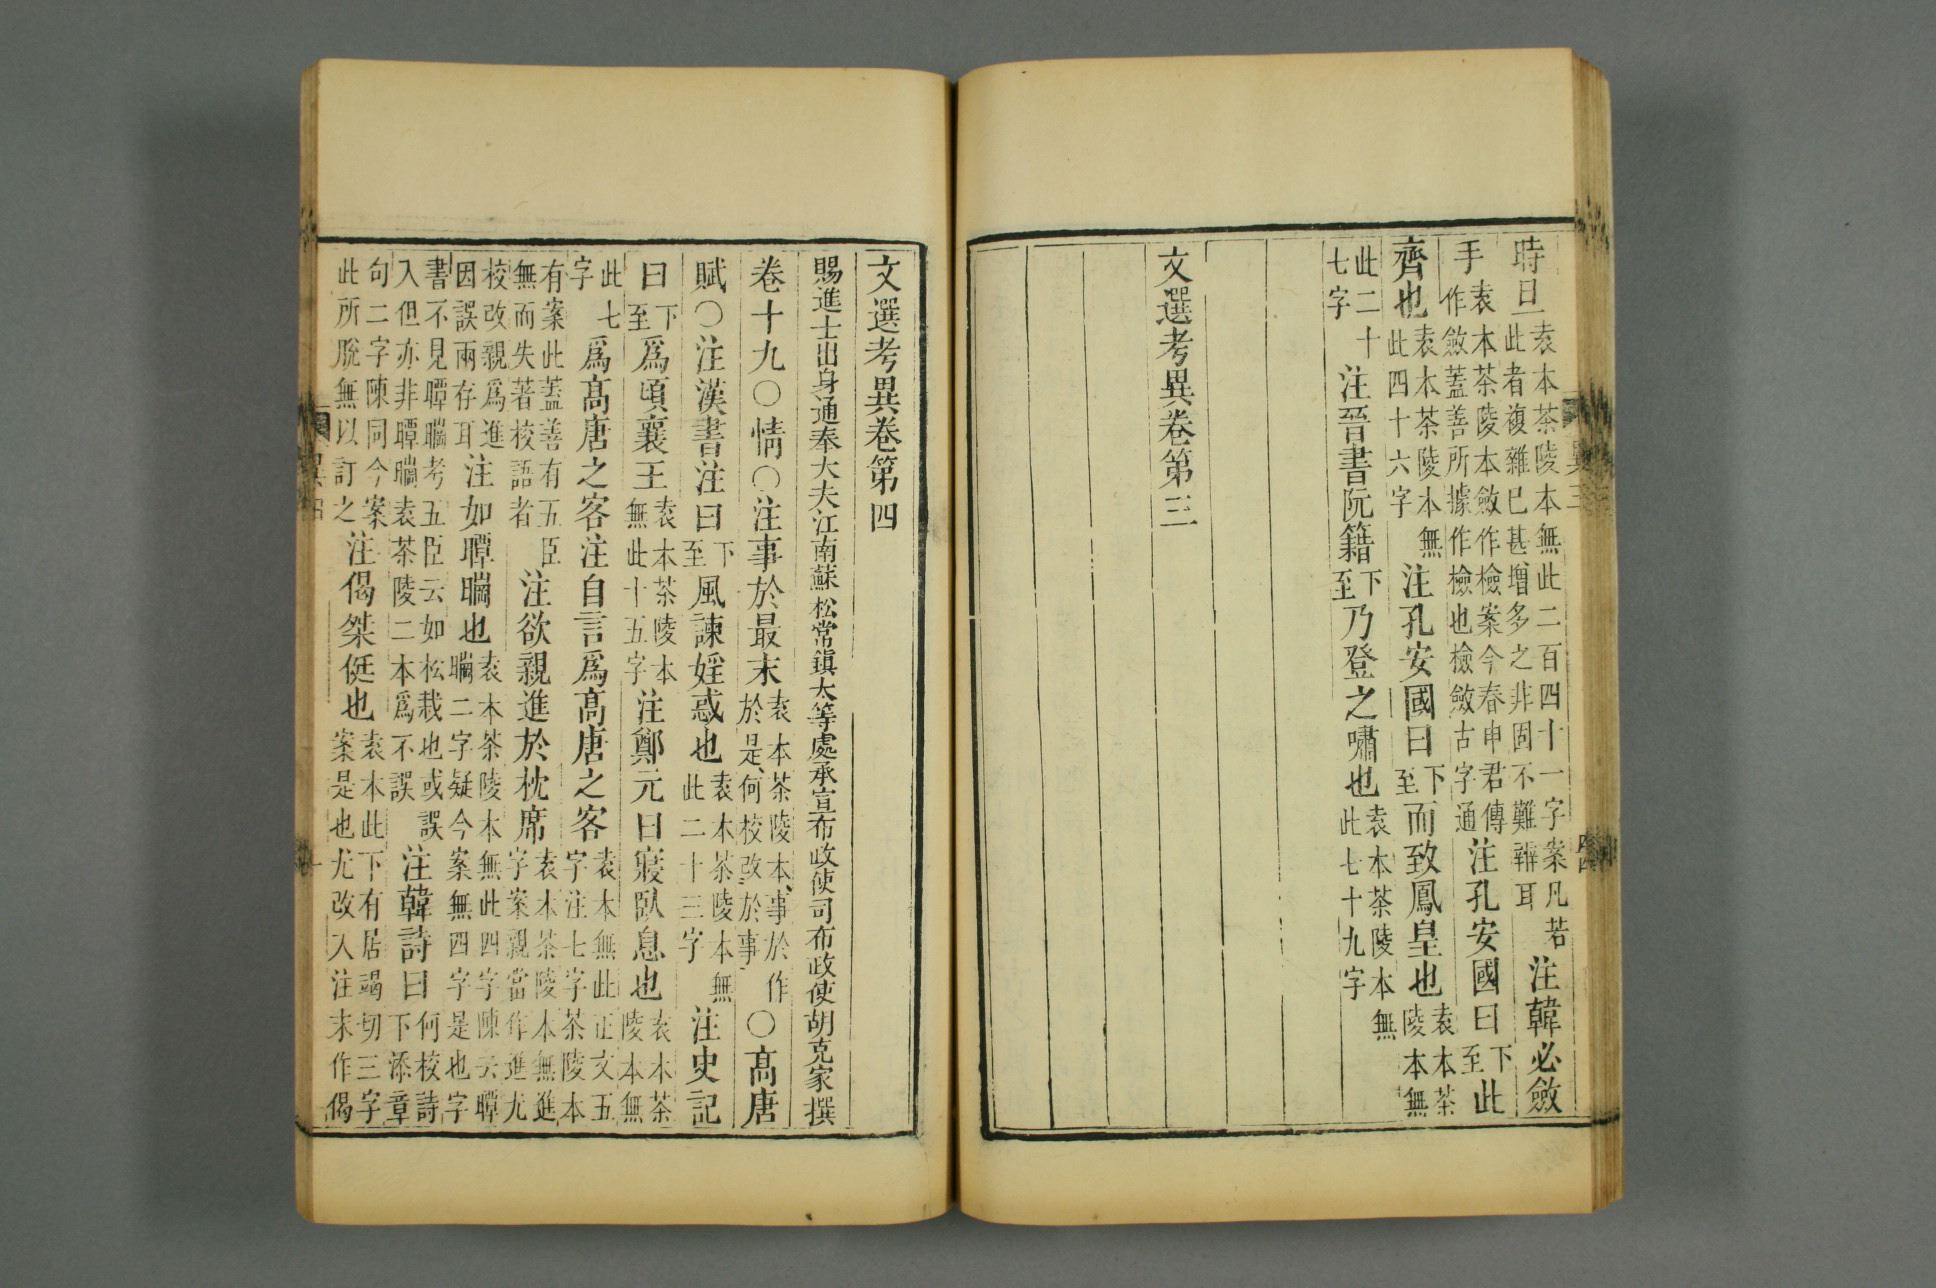 時日袁本茶陵本無此二百四十一字案凡若此者複雜已甚增多之非固不難辨耳注韓必斂
手袁本茶陵本斂作檢案今春申君傳作斂蓋善所據作檢也檢斂古字通注孔安國曰下至此
齊也袁本茶陵本無此四十六字注孔安國曰下至而致鳳皇也袁本茶陵本無
此二十七字注晉書阮籍下至乃登之嘯也袁本茶陵本無此七十九字
文選考異卷第三
文選考異卷第四
賜進士出身通奉大夫江南蘇松常鎮太等處承宣布政使司布政使胡克家撰
卷十九○情○注事於最末袁本茶陵本事於作於是何校改於事○高唐
賦○注漢書注曰下至風諫婬惑也袁本茶陵本無此二十三字注史記
曰下至爲頃襄王袁本茶陵本無此十五字注鄭元曰寢臥息也袁本茶陵本無
此七字爲高唐之客注自言爲高唐之客袁本無此正文五字注七字茶陵本
有案此蓋善有五臣無而失著校語者注欲親進於枕席袁本茶陵本無進字案親當作進尤
校改親爲進因誤兩存耳注如也袁本茶陵本無此四字陳云二字疑今案無四字是也字
書不見考五臣云如松栽也或誤入但亦非袁茶陵二本爲不誤注韓詩曰何校詩下添章
句二字陳同今案此所脫無以訂之注偈桀侹也袁本此下有居竭切三字案是也尤改入注末作偈